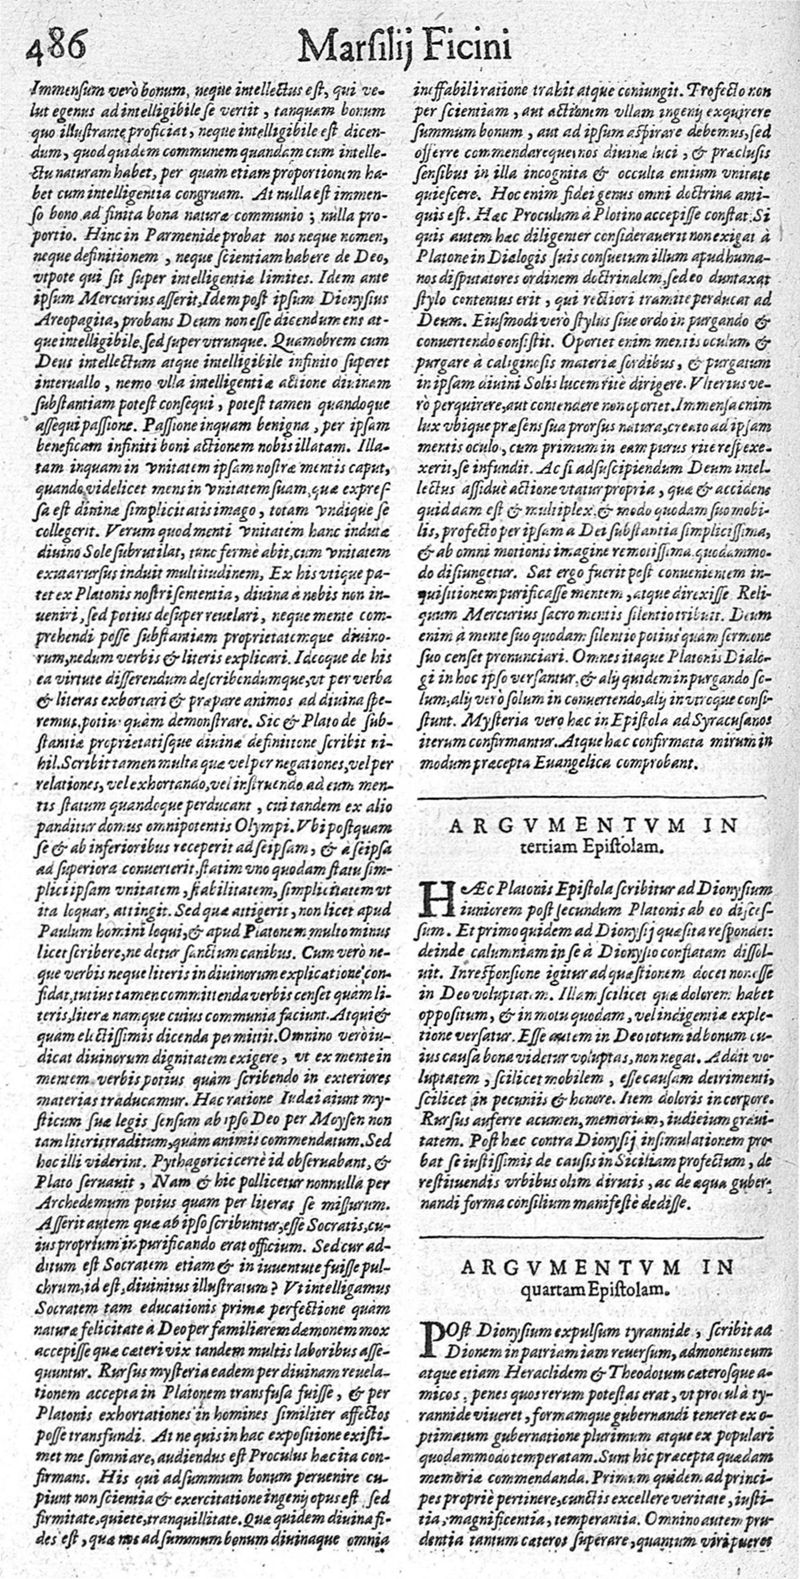 486
Marsilij Ficini
Immensum verò bonum, neque intellectus est, qui ve-
lut egenus ad intelligibile se vertit, tanquam bonum
quo illustrante proficiat, neque intelligibile est dicen-
dum, quod quidem communem quandam cum intelle-
ctu naturam habet, per quam etiam proportionem ha-
bet cum intelligentia congruam. At nulla est immen-
so bono ad finita bona naturæ communio; nulla pro-
portio. Hinc in Parmenide probat nos neque nomen,
neque definitionem, neque scientiam habere de Deo,
vtpote qui sit super intelligentiæ limites. Idem ante
ipsum Mercurius asserit, Idem post ipsum Dionysius
Areopagita, probans Deum non esse dicendum ens at-
que intelligibile, sed super vtrunque. Quamobrem cum
Deus intellectum atque intelligibile infinito superet
interuallo, nemo vlla intelligentiæ actione diuinam
substantiam potest consequi, potest tamen quandoque
assequi passione. Passione inquam benigna, per ipsam
beneficam infiniti boni actionem nobis illatam. Illa-
tam inquam in vnitatem ipsam nostræ mentis caput,
quando videlicet mens in vnitatem suam, quæ expres
sa est diuinæ simplicitatis imago, totam vndique se
collegerit. Verum quod menti vnitatem hanc indutæ
diuino Sole subrutilat, tunc fermè abit, cum vnitatem
exuta rursus induit multitudinem, Ex his vtique pa-
tet ex Platonis nostri sententia, diuina à nobis non in-
ueniri, sed potius desuper reuelari, neque mente com-
prehendi posse substantiam proprietatemque diuino-
rum, nedum verbis & literis explicari. Ideoque de his
ea virtute disserendum describendumque, vt per verba
& literas exhortari & præpare animos ad diuina spe-
remus, potius quàm demonstrare. Sic & Plato de sub-
stantiæ proprietatisque diuinæ definitione scribit ni-
hil. Scribit tamen multa quæ vel per negationes, vel per
relationes, vel exhortando, vel instruendo ad eum men-
tis statum quandoque perducant, cui tandem ex alio
panditur domus omnipotentis Olympi. Vbi postquam
se & ab inferioribus receperit ad seipsam, & à seipsa
ad superiora conuerterit, statim vno quodam statu sim-
plici ipsam vnitatem, stabilitatem, simplicitatem vt
ita loquar, attingit. Sed quæ attigerit, non licet apud
Paulum homini loqui, & apud Platonem multo minus
licet scribere, ne detur sanctum canibus. Cum verò ne-
que verbis neque literis in diuinorum explicatione con-
fidat, tutius tamen committenda verbis censet quàm li-
teris, literæ namque cuius communia faciunt. Atqui &
quàm electissimis dicenda permittit. Omnino verò iu-
dicat diuinorum dignitatem exigere, vt ex mente in
mentem verbis potius quàm scribendo in exteriores
materias traducamur. Hac ratione Iudæi aiunt my-
sticum suæ legis sensum ab ipso Deo per Moysen non
tam literis traditum, quàm animis commendatum. Sed
hoc illi viderint. Pythagorici certè id obseruabant, &
Plato seruauit, Nam & hic pollicetur nonnulla per
Archedemum potius quam per literas se missurum.
Asserit autem quæ ab ipso scribuntur, esse Socratis, cu-
ius proprium in purificando erat officium. Sed cur ad-
ditum est Socratem etiam & in iuuentute fuisse pul-
chrum, id est, diuinitus illustratum? Vt intelligamus
Socratem tam educationis primæ perfectione quàm
naturæ felicitate à Deo per familiarem dæmonem mox
accepisse quæ cæteri vix tandem multis laboribus asse-
quuntur. Rursus mysteria eadem per diuinam reuela-
tionem accepta in Platonem transfusa fuisse, & per
Platonis exhortationes in homines similiter affectos
posse transfundi. At ne quis in hac expositione existi-
met me somniare, audiendus est Proculus hæc ita con-
firmans. His qui ad summum bonum peruenire cu-
piunt non scientia & exercitatione ingenij opus est, sed
firmitate, quiete, tranquillitate. Quæ quidem diuina fi-
des est, quæ nos ad summum bonum diuinaque omnia
ineffabili ratione trahit atque coniungit. Profecto non
per scientiam, aut actionem vllam ingenij exquirere
summum bonum, aut ad ipsum aspirare debemus, sed
offerre commendareque nos diuinæ luci, & præclusis
sensibus in illa incognita & occulta entium vnitate
quiescere. Hoc enim fidei genus omni doctrina anti-
quis est. Hæc Proculum à Plotino accepisse constat. Si
quis autem hæc diligenter considerauerit non exigat à
Platone in Dialogis suis consuetum illum apud huma-
nos disputatores ordinem doctrinalem, sed eo duntaxat
stylo contentus erit, qui rectiori tramite perducat ad
Deum. Eiusmodi verò stylus siue ordo in purgando &
conuertendo consistit. Oportet enim mentis oculum &
purgare à caliginosis materiæ sordibus, & purgatum
in ipsam diuini Solis lucem ritè dirigere. Vlterius ve-
rò perquirere, aut contendere non oportet. Immensa enim
lux vbique præsens sua prorsus natura, creato ad ipsam
mentis oculo, cum primum in eam purus rite respexe-
xerit, se infundit. Ac si ad suscipiendum Deum intel-
lectus assiduè actione vtatur propria, quæ & accidens
quiddam est & multiplex & modo quodam suo mobi-
lis, profecto per ipsam à Dei substantia simplicissima,
& ab omni motionis imagine remotissima quodammo-
do disiungetur. Sat ergo fuerit post conuenientem in-
quisitionem purificasse mentem, atque direxisse. Reli-
quum Mercurius sacro mentis silentio tribuit. Deum
enim à mente suo quodam silentio potius quàm sermone
suo censet pronunciari. Omnes itaque Platonis Dialo-
gi in hoc ipso versantur, & alij quidem in purgando so-
lum, alij verò solum in conuertendo, alij in vtroque consi-
stunt. Mysteria vero hæc in Epistola ad Syracusanos
iterum confirmantur. Atque hæc confirmata mirum in
modum præcepta Euangelica comprobant.
ARGVMENTVM IN
tertiam Epistolam.
HÆc Platonis Epistola scribitur ad Dionysium
iuniorem post secundum Platonis ab eo disces-
sum. Et primo quidem ad Dionysij quæsita respondet:
deinde calumniam in se à Dionysio conflatam dissol-
uit. In responsione igitur ad quæstionem docet non esse
in Deo voluptatem. Illam scilicet quæ dolorem habet
oppositum, & in motu quodam, vel indigentiæ exple-
tione versatur. Esse autem in Deo totum id bonum cu-
ius causa bona videtur voluptas, non negat. Addit vo-
luptatem, scilicet mobilem, esse causam detrimenti,
scilicet in pecuniis & honore. Item doloris in corpore.
Rursus auferre acumen, memoriam, iudicium graui-
tatem. Post hæc contra Dionysij insimulationem pro-
bat se iustissimis de causis in Siciliam profectum, de
restituendis vrbibus olim dirutis, ac de æqua guber-
nandi forma consilium manifestè dedisse.
ARGVMENTVM IN
quartam Epistolam.
POst Dionysium expulsum tyrannide, scribit ad
Dionem in patriam iam reuersum, admonens eum
atque etiam Heraclidem & Theodotum cæterosque a-
micos, penes quos rerum potestas erat, vt procul à ty-
rannide viueret, formamque gubernandi teneret ex o-
ptimatum gubernatione plurimum atque ex populari
quodammodo temperatam. Sunt hic præcepta quædam
memoriæ commendanda. Primum quidem ad princi-
pes propriè pertinere, cunctis excellere veritate, iusti-
tia, magnificentia, temperantia. Omnino autem pru-
dentia tantum cæteros superare, quantum viri pueros